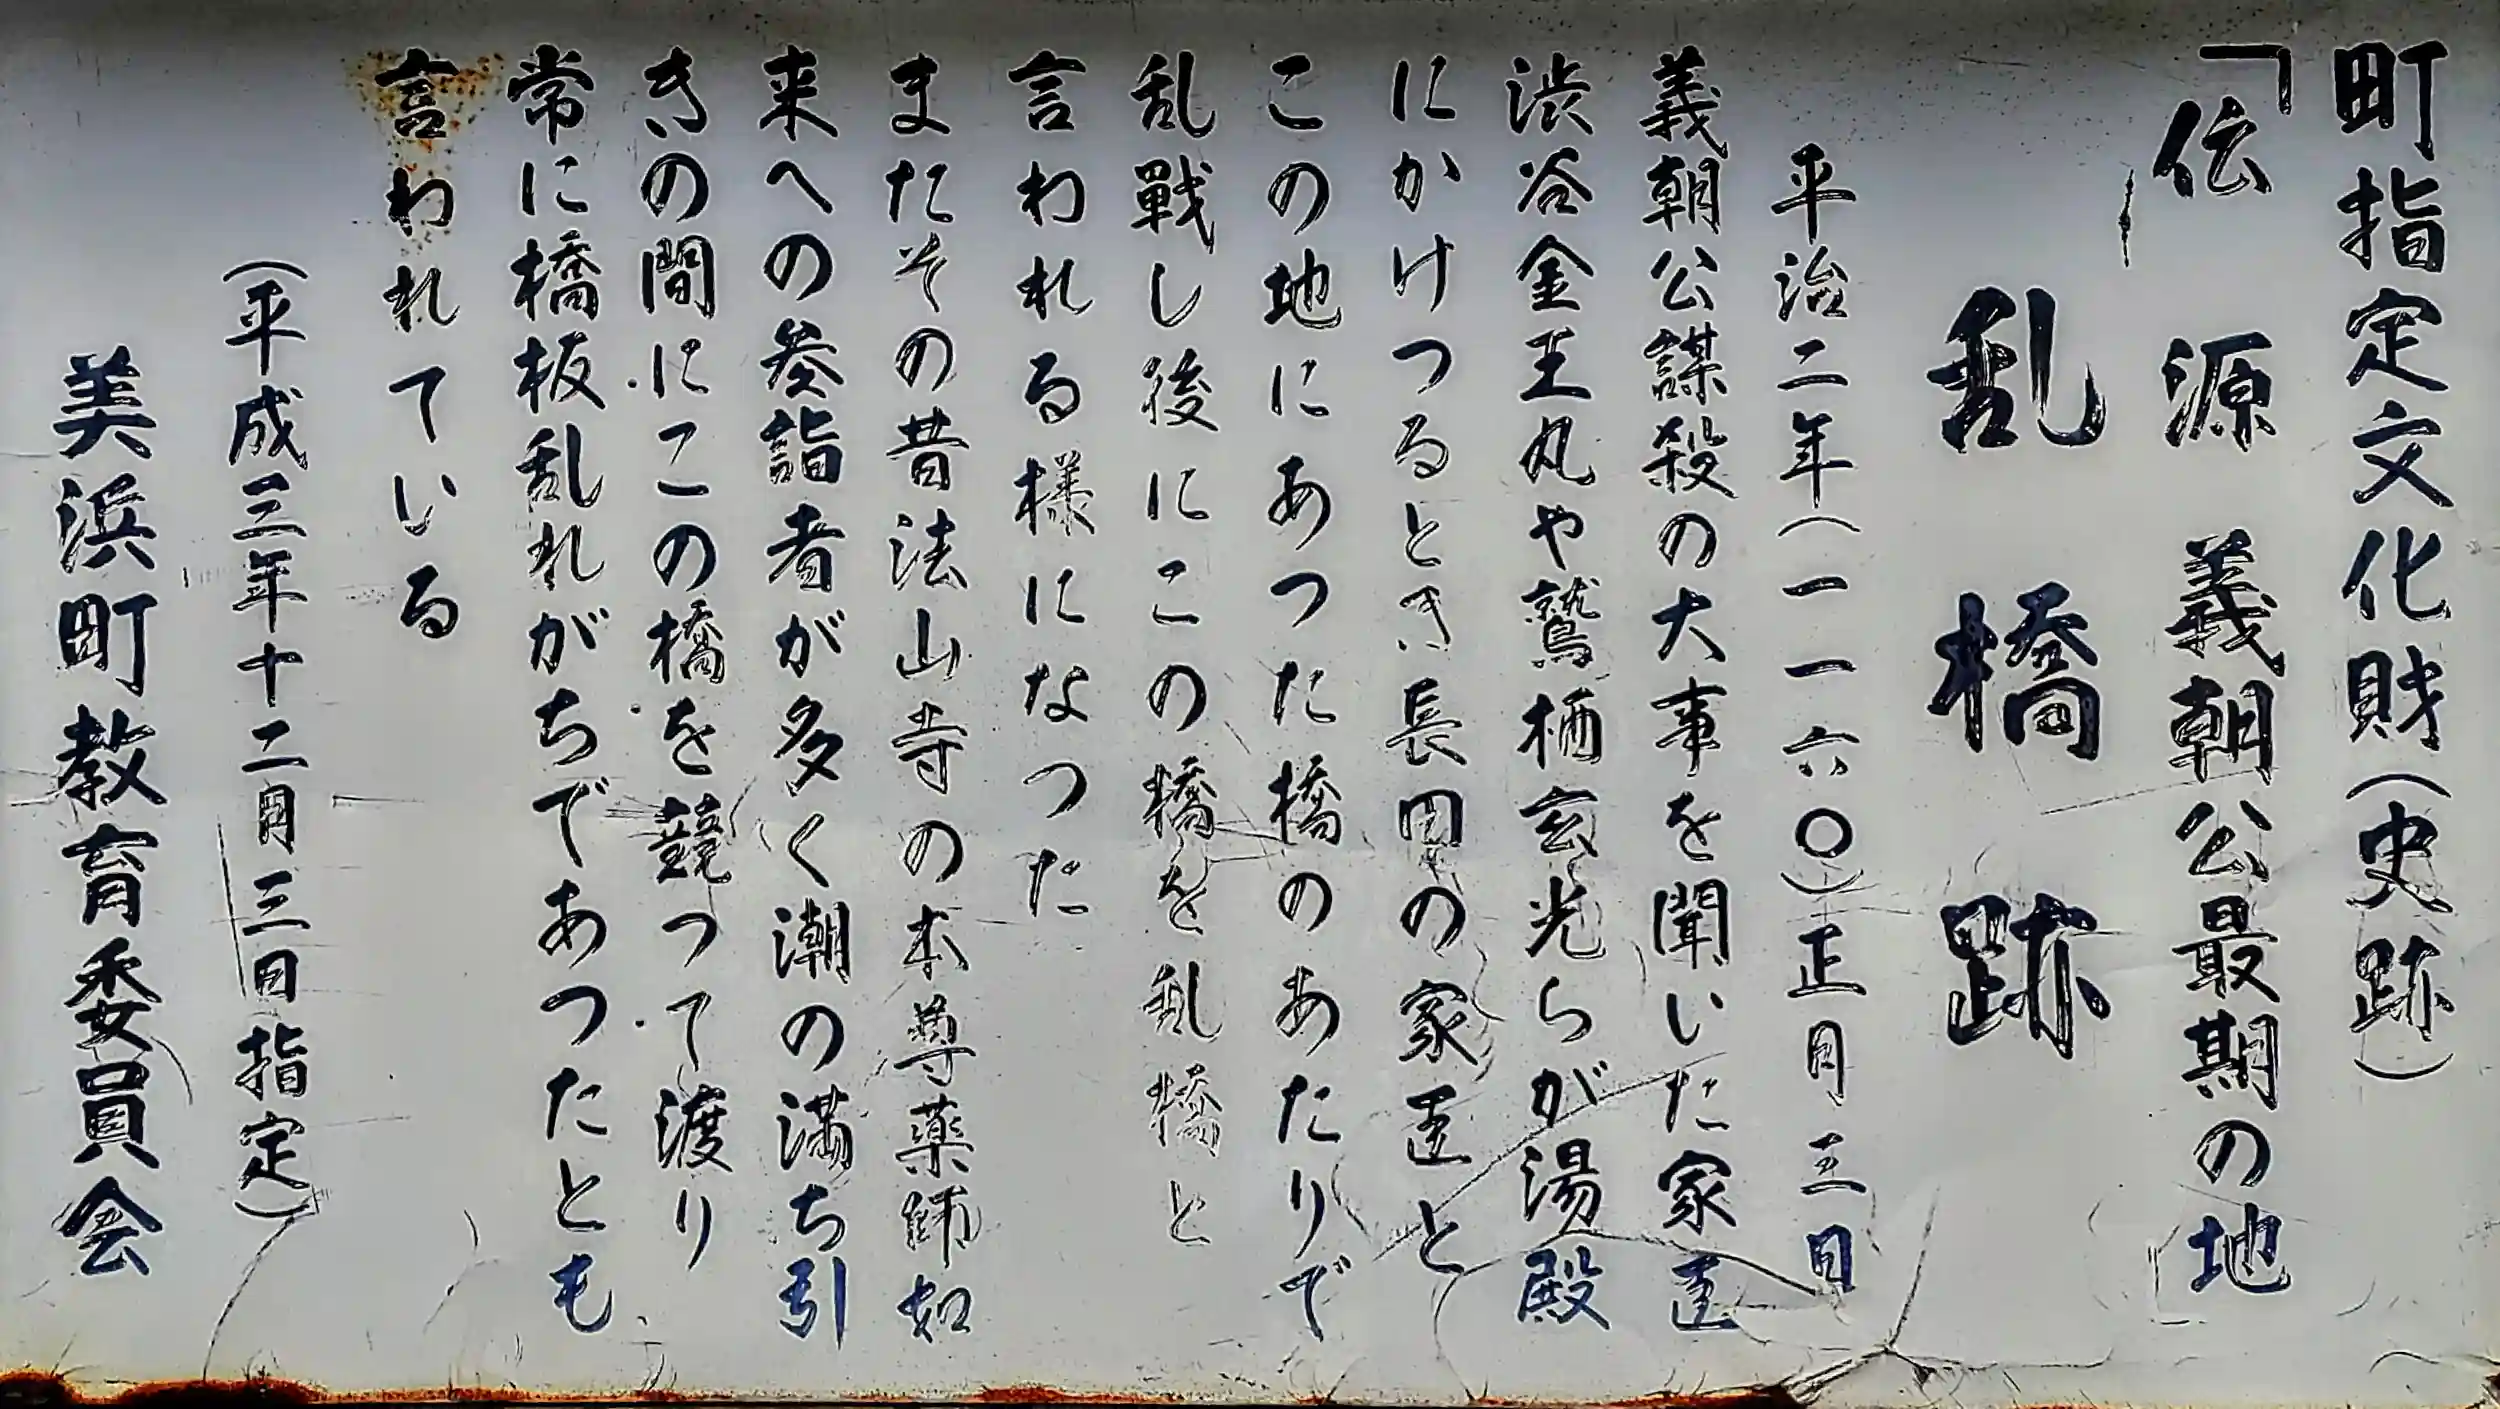 町指定文化財(史跡)
「伝 源 義朝公最期の地」
乱橋跡
平治二年(一一六〇)正月三日
義朝公謀殺の大事を聞いた家臣
渋谷金王丸や鷲栖玄光らが湯殿
にかけつるとき長田の家臣と
この地にあった橋のあたりで
乱戦し後にこの橋を乱橋と
言われる様になつた
またその昔法山寺の本尊薬師如
来への参詣者が多く潮の満ち引
きの間にこの橋を競つて渡り
常に橋板乱れがちであつたとも
言われている
(平成三年十二月三日指定)
美浜町教育委員会